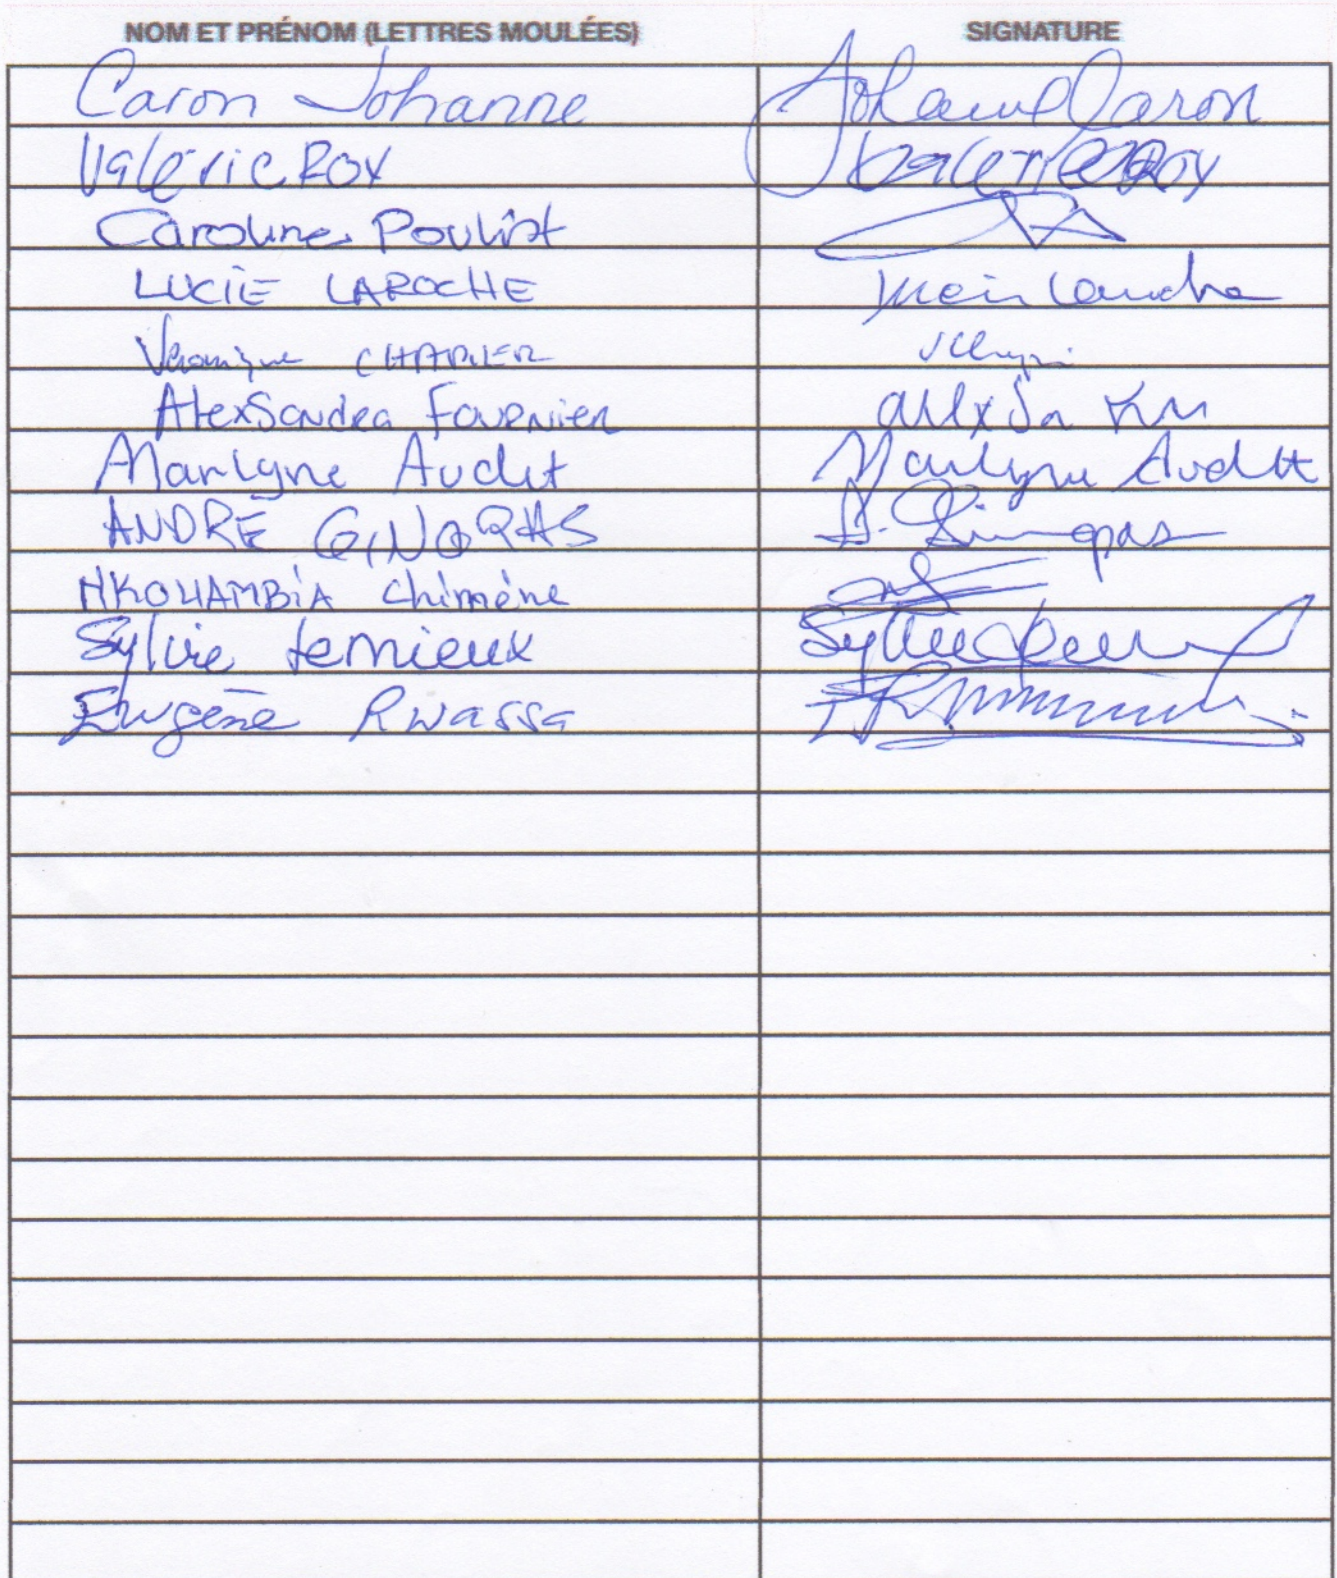 NOM ET PRÉNOM (LETTRES MOULÉES) SIGNATURE
Caron Johanne Johanne Caron
Valérie Roy Valérie Roy
Caroline Pouliot
LUCIE LAROCHE
Véronique CHARLIER
AlexSandra Fournier
Marlyne Audet Marlyne Audet
ANDRÉ GINGRAS A. Gingras
NKOUAMBIA Chimène
Sylvie Lemieux Sylvie
Eugène Rwassa